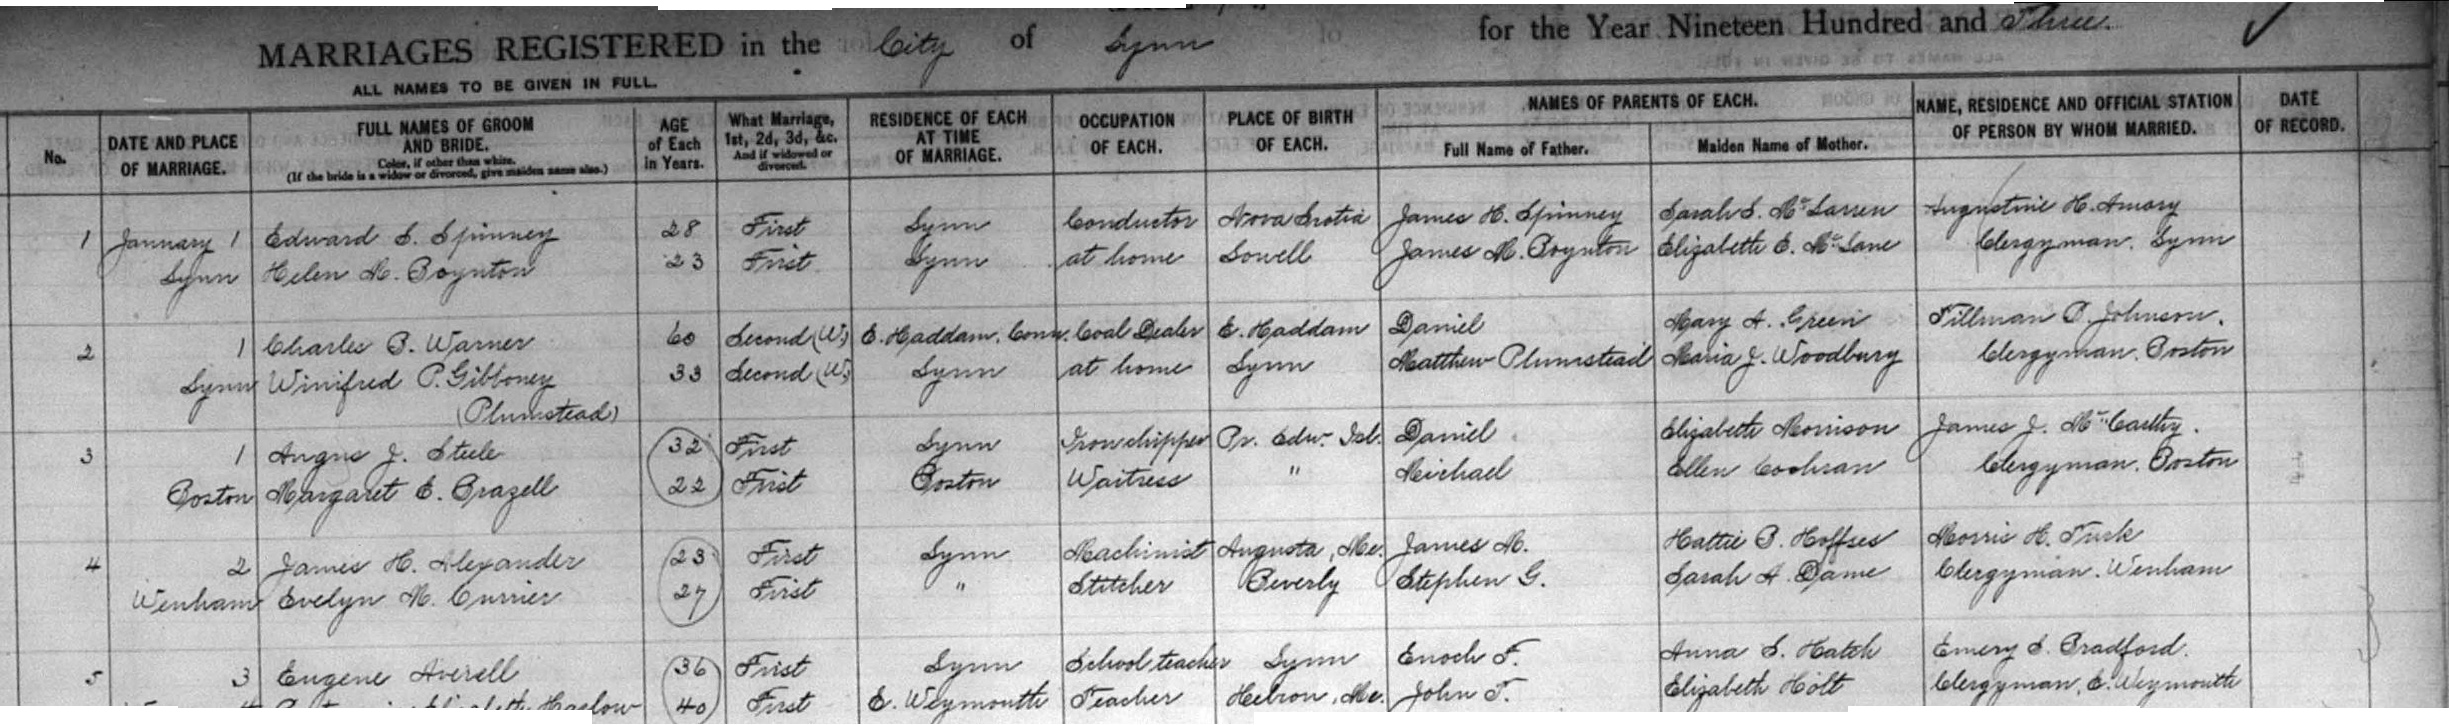 MARRIAGES REGISTERED in the City of Lynn for the Year Nineteen Hundred and Three.
ALL NAMES TO BE GIVEN IN FULL.
No.
DATE AND PLACE OF MARRIAGE.
FULL NAMES OF GROOM AND BRIDE.
Color, if other than white.
(If the bride is a widow or divorced, give maiden name also.)
AGE of Each in Years.
What Marriage, 1st, 2d, 3d, &c. And if widowed or divorced.
RESIDENCE OF EACH AT TIME OF MARRIAGE.
OCCUPATION OF EACH.
PLACE OF BIRTH OF EACH.
NAMES OF PARENTS OF EACH.
Full Name of Father.
Maiden Name of Mother.
NAME, RESIDENCE AND OFFICIAL STATION OF PERSON BY WHOM MARRIED.
DATE OF RECORD.
1 January 1 Edward S. Spinney 28 First Lynn Conductor Nova Scotia James H. Spinney Sarah S. McLarren Augustine H. Amory
Lynn Helen M. Boynton 23 First Lynn at home Lowell James M. Boynton Elizabeth E. McLane Clergyman. Lynn
2 1 Charles B. Warner 60 Second (W.) E. Haddam, Conn. Coal Dealer E. Haddam Daniel Mary A. Green Tillman B. Johnson.
Lynn Winifred P. Gibboney 33 Second (W.) Lynn at home Lynn Matthew Plumstead Maria J. Woodbury Clergyman. Boston
(Plumstead)
3 1 Angus J. Steele 32 First Lynn Iron chipper Pr. Edw. Isl. Daniel Elizabeth Morrison James J. McCarthy.
Boston Margaret E. Brazell 22 First Boston Waitress " Michael Ellen Cochran Clergyman. Boston
4 2 James H. Alexander 23 First Lynn Machinist Augusta, Me. James M. Hattie B. Hoffses Morris H. Turk
Wenham Evelyn M. Currier 27 First " Stitcher Beverly Stephen G. Sarah A. Dame Clergyman. Wenham
5 3 Eugene Averell 36 First Lynn School teacher Lynn Enoch F. Anna S. Hatch Emery S. Bradford.
Haslow 40 First E. Weymouth Teacher Hebron, Me. John T. Elizabeth Holt Clergyman, E. Weymouth